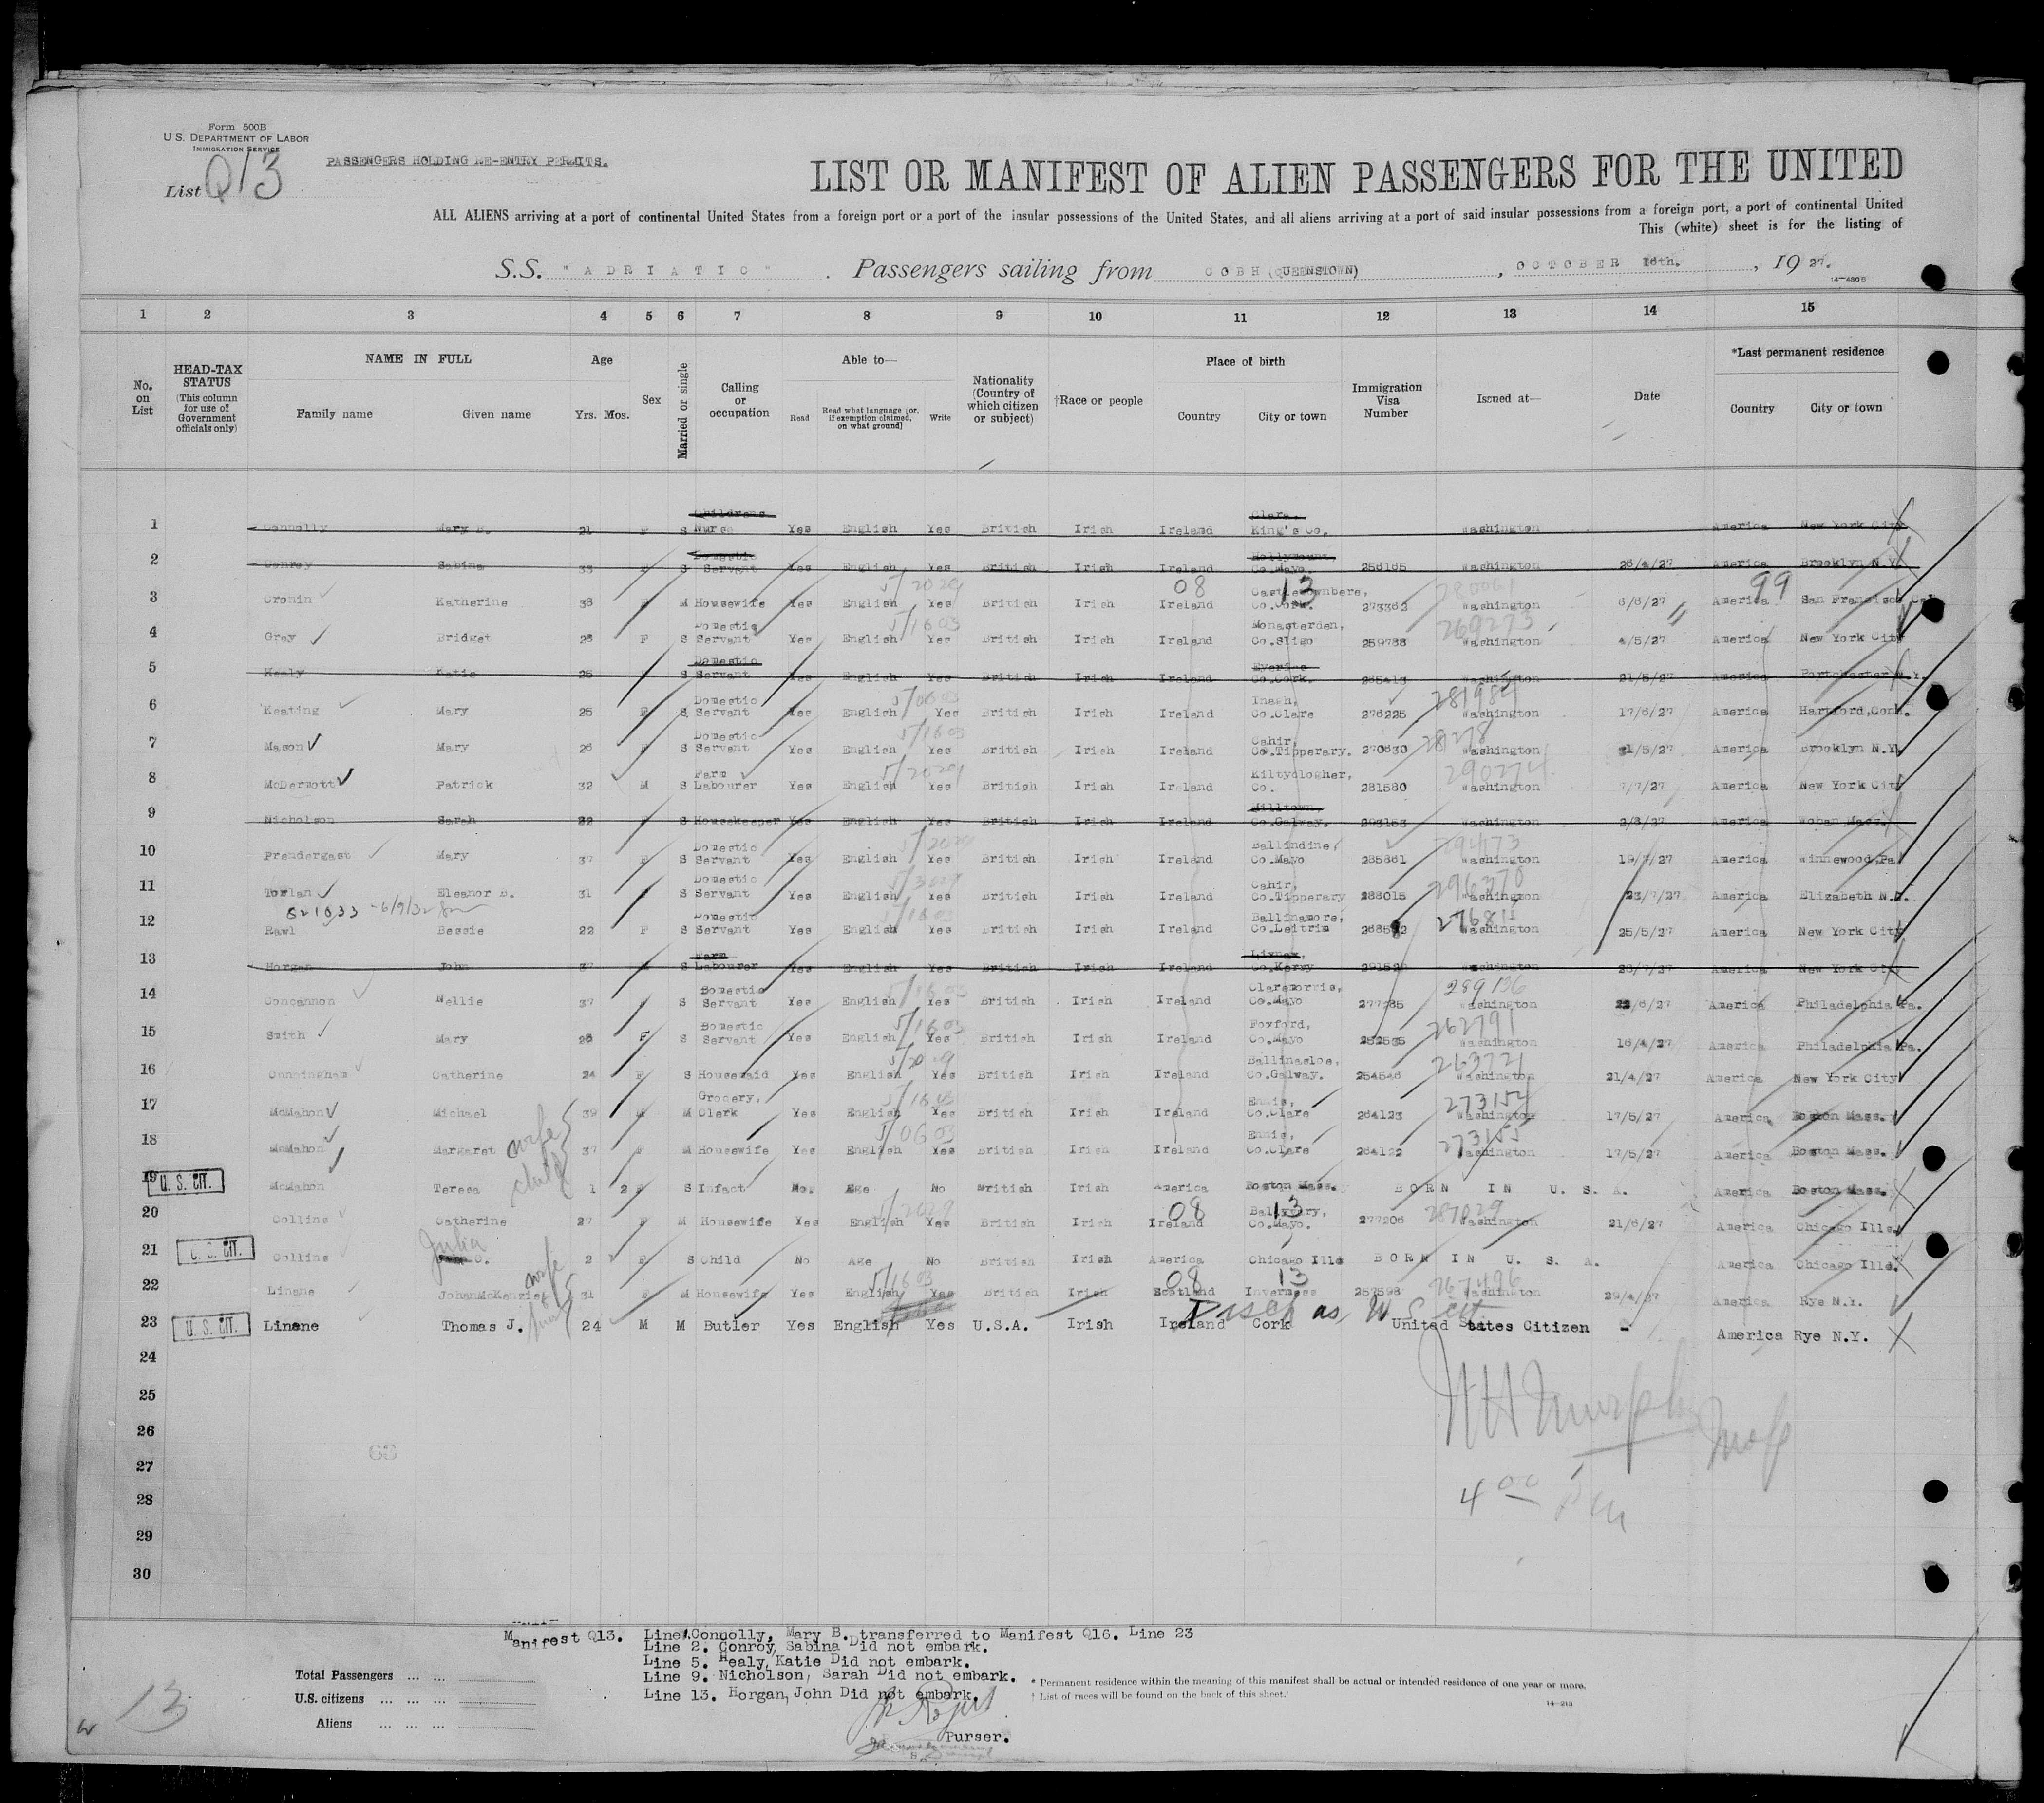 Form 500B
U. S. DEPARTMENT OF LABOR
IMMIGRATION SERVICE
List Q13
PASSENGERS HOLDING RE-ENTRY PERMITS.
LIST OR MANIFEST OF ALIEN PASSENGERS FOR THE UNITED
ALL ALIENS arriving at a port of continental United States from a foreign port or a port of the insular possessions of the United States, and all aliens arriving at a port of said insular possessions from a foreign port, a port of continental United
This (white) sheet is for the listing of
S.S. "ADRIATIC". Passengers sailing from COBH (QUEENSTOWN), OCTOBER 16th., 1927.
1 2 3 4 5 6 7 8 9 10 11 12 13 14 15
No. on List
HEAD-TAX STATUS (This column for use of Government officials only)
NAME IN FULL Family name Given name
Age Yrs. Mos.
Sex
Married or single
Calling or occupation
Able to— Read Read what language (or, if exemption claimed, on what ground) Write
Nationality (Country of which citizen or subject)
†Race or people
Place of birth Country City or town
Immigration Visa Number
Issued at—
Date
*Last permanent residence Country City or town
1 Connolly Mary B. 21 F S Childrens Nurse Yes English Yes British Irish Ireland Clara, King's Co. Washington America New York City
2 Conroy Sabina 33 F S Domestic Servant Yes English Yes British Irish Ireland Hollymount, Co.Mayo. 256165 Washington 26/4/27 America Brooklyn N.Y.
3 Cronin Katherine 38 F M Housewife Yes English Yes British Irish Ireland Castletownbere, Co.Cork. 273362 Washington 6/6/27 America San Francisco Cal
4 Gray Bridget 26 F S Domestic Servant Yes English Yes British Irish Ireland Monasterden, Co.Sligo 259788 269273 Washington 4/5/27 America New York City
5 Healy Katie 25 F S Domestic Servant Yes English Yes British Irish Ireland Eyeries Co.Cork. 265413 Washington 21/5/27 America Portchester N.Y.
6 Keating Mary 25 F S Domestic Servant Yes English Yes British Irish Ireland Inagh, Co.Clare 276225 Washington 17/6/27 America Hartford,Conn.
7 Mason Mary 26 F S Domestic Servant Yes English Yes British Irish Ireland Cahir, Co.Tipperary. 270630 Washington 31/5/27 America Brooklyn N.Y.
8 McDermott Patrick 32 M S Farm Labourer Yes English Yes British Irish Ireland Kiltyclogher, Co. 281580 290274 Washington 7/7/27 America New York City
9 Nicholson Sarah 22 F S Housekeeper Yes English Yes British Irish Ireland Milltown, Co.Galway. 293163 Washington 2/8/27 America Woban Mass.
10 Prendergast Mary 37 F S Domestic Servant Yes English Yes British Irish Ireland Ballindine, Co.Mayo 285861 Washington 19/7/27 America Winnewood,Pa
11 Torlan Eleanor B. 31 F S Domestic Servant Yes English Yes British Irish Ireland Cahir, Co.Tipperary 288015 296370 Washington 23/7/27 America Elizabeth N.J.
12 Rawl Bessie 22 F S Domestic Servant Yes English Yes British Irish Ireland Ballinamore, Co.Leitrim Washington 25/5/27 America New York City
13 Horgan John 37 M S Farm Labourer Yes English Yes British Irish Ireland Lixnaw, Co.Kerry Washington 28/7/27 America New York City
14 Concannon Nellie 37 F S Domestic Servant Yes English Yes British Irish Ireland Claremorris, Co.Mayo 277285 289136 Washington America Philadelphia Pa.
15 Smith Mary 28 F S Domestic Servant Yes English Yes British Irish Ireland Foxford, Co.Mayo 252535 262791 Washington 16/4/27 America Philadelphia Pa.
16 Cunningham Catherine 24 F S Housemaid Yes English Yes British Irish Ireland Ballinasloe, Co.Galway. 254546 263721 Washington 21/4/27 America New York City
17 McMahon Michael 39 M M Grocery, Clerk Yes English Yes British Irish Ireland Ennis, Co.Clare 264123 273154 Washington 17/5/27 America Boston Mass.
18 McMahon Margaret wife 37 F M Housewife Yes English Yes British Irish Ireland Ennis, Co.Clare 264122 273155 Washington 17/5/27 America Boston Mass.
19 U. S. CIT. McMahon Teresa child 1 2 F S Infact No. Age No British Irish America Boston Mass. BORN IN U. S. A. America Boston Mass.
20 Collins Catherine 27 F M Housewife Yes English Yes British Irish Ireland Co.Mayo. 277206 287029 Washington 21/6/27 America Chicago Ills.
21 U. S. CIT. Collins Julia C. 2 F S Child No Age No British Irish America Chicago Ills BORN IN U. S. A. America Chicago Ills.
22 Linene JohanMcKenzie wife 31 F M Housewife Yes English Yes British Irish Scotland Inverness 257598 267496 Washington 29/4/27 America Rye N.Y.
23 U. S. CIT. Linene Thomas J. 24 M M Butler Yes English Yes U.S.A. Irish Ireland Cork United States Citizen - America Rye N.Y.
Disch as U S cit
24
25
26
27
28
29
30
4 00 Pm
Manifest Q13. Line 1. Connolly, Mary B. transferred to Manifest Q16. Line 23
Line 2. Conroy, Sabina Did not embark.
Line 5. Healy, Katie Did not embark.
Line 9. Nicholson, Sarah Did not embark.
Line 13. Horgan, John Did not embark.
Total Passengers
U.S. citizens
Aliens
13
* Permanent residence within the meaning of this manifest shall be actual or intended residence of one year or more.
† List of races will be found on the back of this sheet.
14—213
Purser.